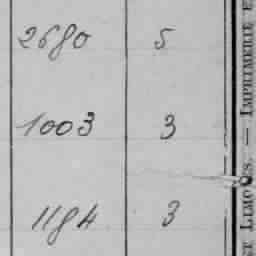 2680 5
1003 3
1184 3
ET LIMOGES. — IMPRIMERIE E